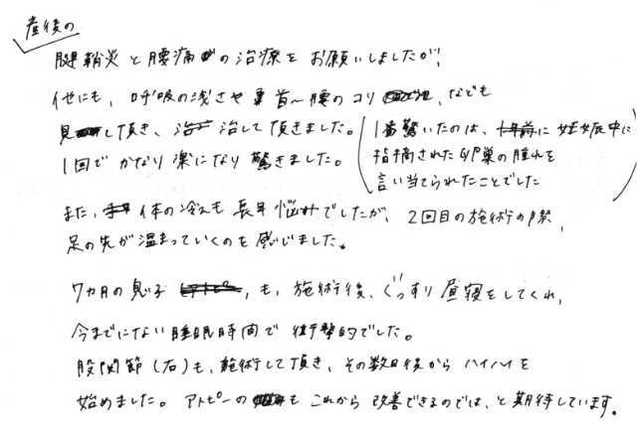 産後の
腱鞘炎と腰痛の治療をお願いしましたが、
他にも、呼吸の浅さや首〜腰のコリなども
見て頂き、治して頂きました。
1回でかなり楽になり驚きました。
(1番驚いたのは、十年前に妊娠中に
指摘された卵巣の腫れを
言い当てられたことでした)
また、体の冷えも長年悩みでしたが、2回目の施術の際、
足の先が温まっていくのを感じました。
7カ月の息子も、施術後、ぐっすり昼寝をしてくれ、
今までにない睡眠時間で衝撃的でした。
股関節(右)も、施術して頂き、その数日後からハイハイを
始めました。アトピーのもこれから改善できるのでは、と期待しています。